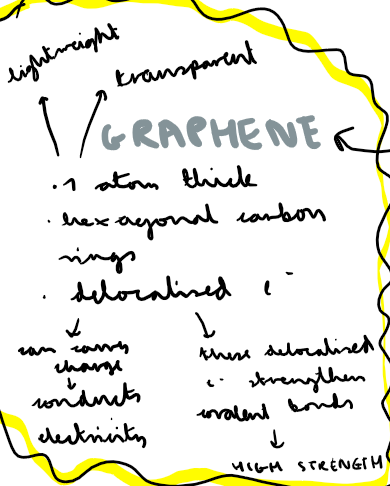 lightweight
transparent
GRAPHENE
· 1 atom thick
· hexagonal carbon
rings
· delocalised e⁻
can carry
charge
conducts
electricity
these delocalised
e⁻ strengthen
covalent bonds
HIGH STRENGTH